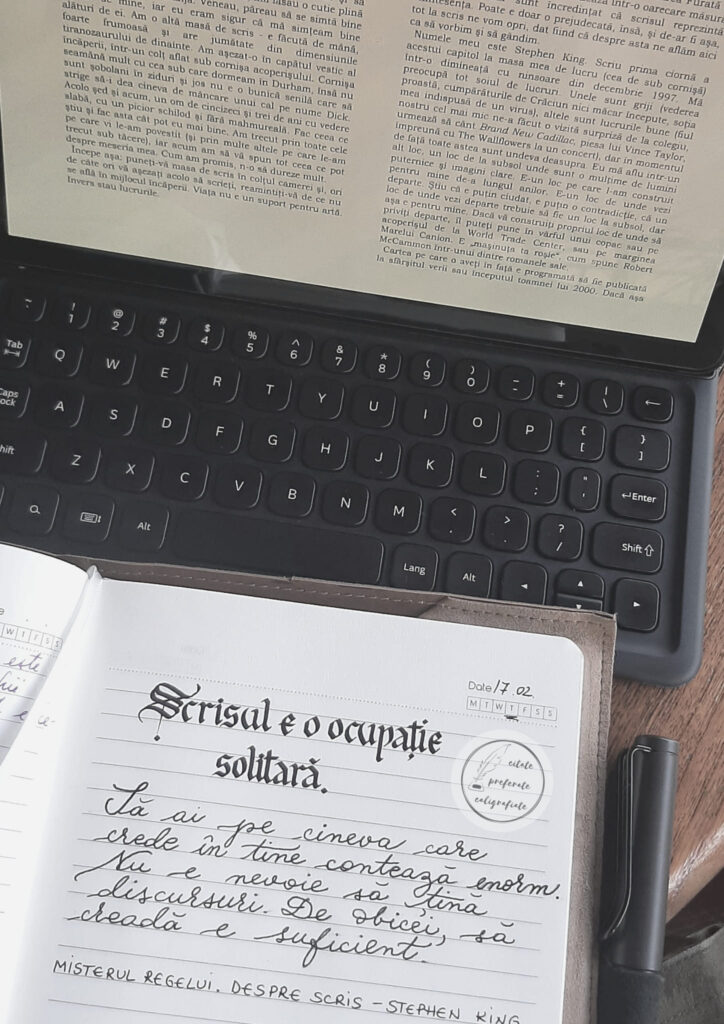 de mine, iar eu eram sigur că mă simțeam bine
alături de ei. Am o altă masă de scris - e făcută de mână,
foarte frumoasă și are jumătate din dimensiunile
tiranozaurului de dinainte. Am așezat-o în capătul vestic al
încăperii, într-un colț aflat sub cornișa acoperișului. Cornișa
seamănă mult cu cea sub care dormeam în Durham, însă nu
sunt șobolani în ziduri și jos nu e o bunică senilă care să
strige să-i dea cineva de mâncare unui cal pe nume Dick.
Acolo șed și acum, un om de cincizeci și trei de ani cu vedere
slabă, cu un picior schilod și fără mahmureală. Fac ceea ce
știu și fac asta cât pot eu mai bine. Am trecut prin toate cele
pe care vi le-am povestit (și prin multe altele pe care le-am
trecut sub tăcere), iar acum am să vă spun tot ceea ce pot
despre meseria mea. Cum am promis, n-o să dureze mult.
Începe așa: puneți-vă masa de scris în colțul camerei și, ori
de câte ori vă așezați acolo să scrieți, reamintiți-vă de ce nu
se află în mijlocul încăperii. Viața nu e un suport pentru artă.
Invers stau lucrurile.
într-o oarecare măsură
sunt încredințat că scrisul reprezintă
Poate e doar o prejudecată, însă, și de-ar fi așa,
tot la scris ne vom opri, dat fiind că despre asta ne aflăm aici
ca să vorbim și să gândim.
Numele meu este Stephen King. Scriu prima ciornă a
acestui capitol la masa mea de lucru (cea de sub cornișă)
într-o dimineață cu ninsoare din decembrie 1997. Mă
preocupă tot soiul de lucruri. Unele sunt griji (vederea
proastă, cumpărăturile de Crăciun nici măcar începute, soția
mea indispusă de un virus), altele sunt lucruri bune (fiul
nostru cel mic ne-a făcut o vizită surpriză de la colegiu,
urmează să cânt Brand New Cadillac, piesa lui Vince Taylor,
împreună cu The Wallflowers la un concert), dar în momentul
de față toate astea sunt undeva deasupra. Eu mă aflu într-un
alt loc, un loc de la subsol unde sunt o mulțime de lumini
puternice și imagini clare. E-un loc pe care l-am construit
pentru mine de-a lungul anilor. E-un loc de unde vezi
departe. Știu că e puțin ciudat, e puțin o contradicție, că un
loc de unde vezi departe trebuie să fie un loc la subsol, dar
așa e pentru mine. Dacă vă construiți propriul loc de unde să
priviți departe, îl puteți pune în vârful unui copac sau pe
acoperișul de la World Trade Center, sau pe marginea
Marelui Canion. E „mașinuța ta roșie", cum spune Robert
McCammon într-unul dintre romanele sale.
Cartea pe care o aveți în față e programată să fie publicată
la sfârșitul verii sau începutul toamnei lui 2000. Dacă așa
~ ` ! 1 @ 2 # 3 $ 4 % 5 ^ 6 & 7 * 8 ( 9 ) 0 _ - + = | \ ←
Tab Q W E R T Y U I O P { [ } ]
Caps Lock A S D F G H J K L : ; " ' Enter
Shift Z X C V B N M < , > . ? / Shift
Alt Lang Alt
este
Date 17.02.
M T W T F S S
Scrisul e o ocupație
solitară.
citate
preferate
caligrafiate
Să ai pe cineva care
crede în tine contează enorm.
Nu e nevoie să țină
discursuri. De obicei, să
creadă e suficient.
MISTERUL REGELUI. DESPRE SCRIS – STEPHEN KING